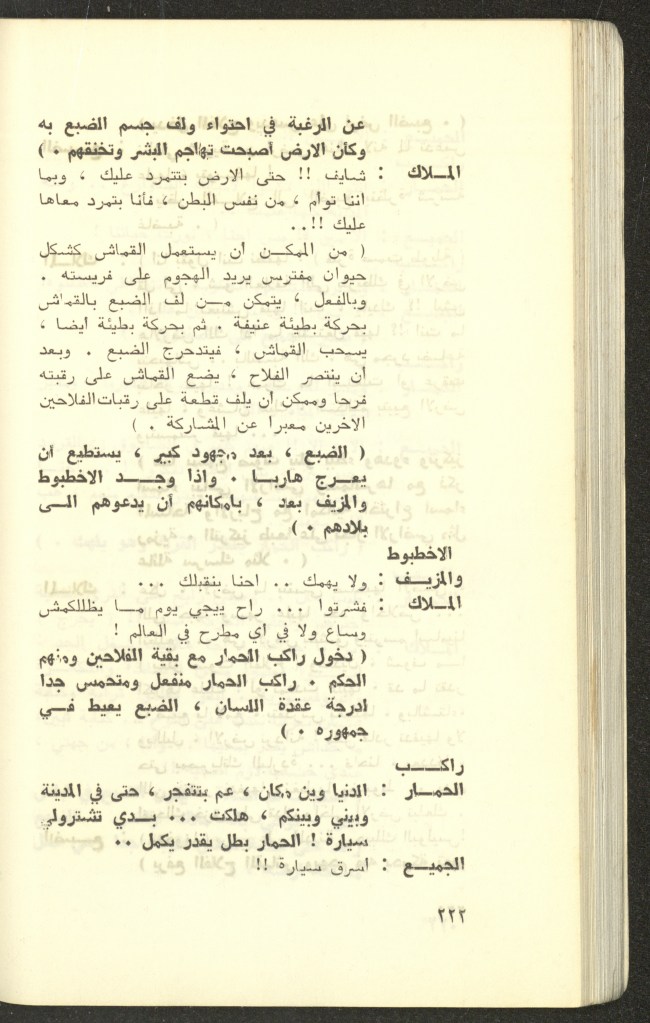 عن الرغبة في احتواء ولف جسم الضبع به
وكأن الارض أصبحت تهاجم البشر وتخنقهم . )
المـلاك : شايف !! حتى الارض بتتمرد عليك ، وبما
اننا توأم ، من نفس البطن ، فأنا بتمرد معاها
عليك !!..
( من الممكـن أن يستعمل القماش كشكل
حيوان مفترس يريد الهجوم على فريسته .
وبالفعل ، يتمكن مـن لف الضبع بالقماش
بحركة بطيئة عنيفة . ثم بحركة بطيئة أيضا ،
يسحب القماش ، فيتدحرج الضبع . وبعد
أن ينتصر الفلاح ، يضع القماش على رقبته
فرحا وممكن أن يلف قطعة على رقبات الفلاحين
الاخرين معبرا عن المشاركة . )
( الضبع ، بعد مجهود كبير ، يستطيع أن
يعـرج هاربـا . واذا وجـد الاخطبوط
والمزيف بعد ، بامكانهم أن يدعوهم الـى
بلادهم . )
الاخطبوط
والمزيـف : ولا يهمك .. احنا بنقبلك ...
المـلاك : فشرتوا ... راح ييجي يوم مـا يظللكمش
وساع ولا في أي مطرح في العالم !
( دخول راكب الحمار مع بقية الفلاحين ومنهم
الحكم . راكب الحمار منفعل ومتحمس جدا
لدرجة عقدة اللسان ، الضبع يعيط فـي
جمهوره . )
راكـب
الحمـار : الدنيا وين مكان ، عم بتتفجر ، حتى في المدينة
وبيني وبينكم ، هلكت ... بـدي تشترولي
سيارة ! الحمار بطل يقدر يكمل ..
الجميـع : اسرق سيارة !!
٢٢٢